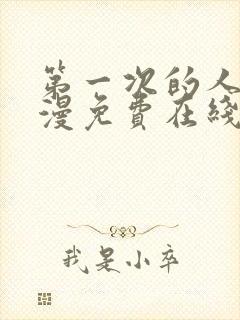 第一次的人
漫免费在线
我是小卒